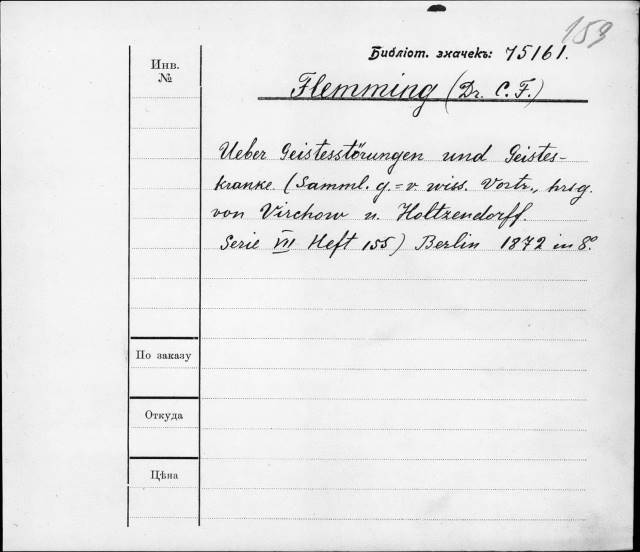 159
Библіот. значекъ: 75161.
Инв.
№
Flemming (Dr. C. F.)
Ueber Geistesstörungen und Geistes-
kranke. (Samml. g.=v. wiss. Vortr., hrsg.
von Virchow u. Holtzendorff.
Serie VII Heft 155) Berlin 1872 in 8º.
По заказу
Откуда
Цѣна